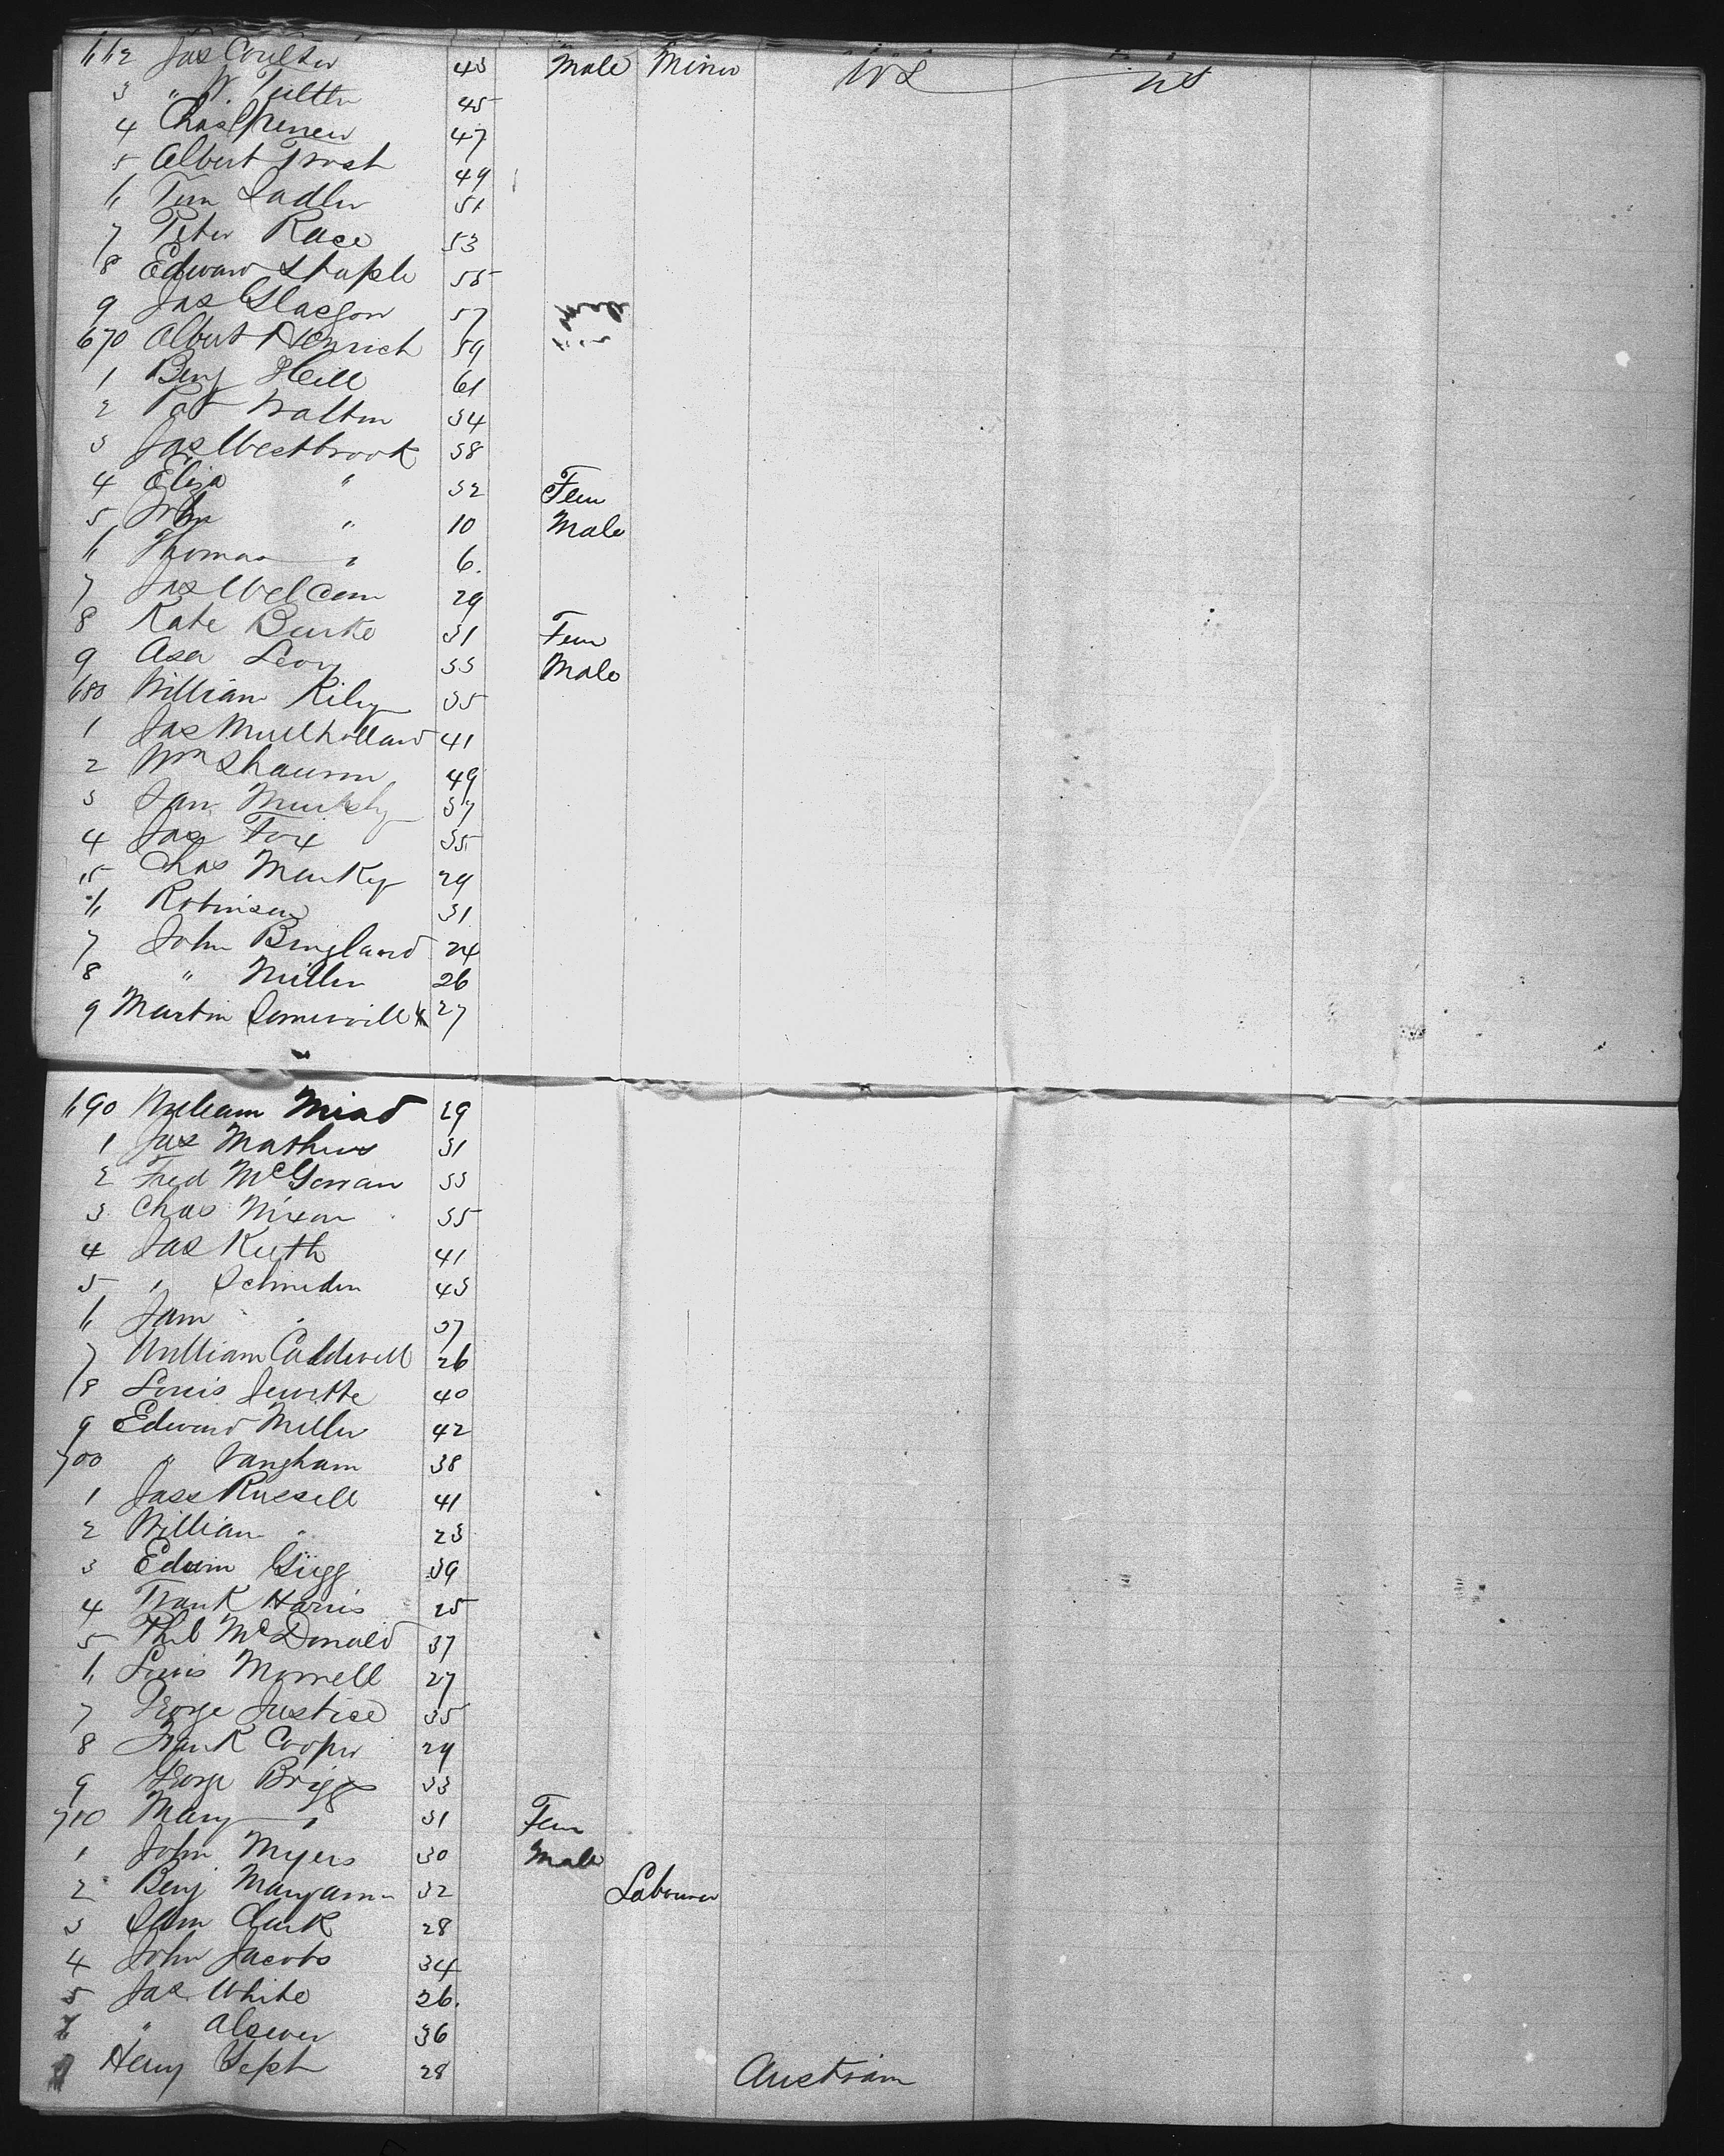 662 Jas Coulter 43 Male Miner U S U S
3 " W. 45
4 Chas 47
5 Albert Trost 49
6 Tim Sadler 51
7 Peter Race 53
8 Edward Staple 55
9 Jas Glasgow 57
670 Albert Henrich 59
1 Benj Hill 61
2 Pat Walton 34
3 Jas Westbrook 38
4 Eliza " 32 Fem
5 John " 10 Male
6 Thomas " 6.
7 Jas Welcom 29
8 Kate Burke 31 Fem
9 Asa Levy 33 Male
680 William Riley 35
1 Jas Mullholland 41
2 Wm 49
3 37
4 Jas Fox 35
5 Chas Markey 29
6 Robinson 31
7 John Bingland 24
8 " Miller 26
9 Martin Somerville 27
690 William Miad 29
1 Jas Mathews 31
2 Fred McGowan 33
3 Chas Nixon 35
4 Jas Keith 41
5 " Schneider 43
6 Sam " 37
7 William Caldwell 26
8 Louis Jewitte 40
9 Edward Miller 42
700 " Vangham 38
1 Jass Russell 41
2 William " 23
3 Edwin Gugg 39
4 Frank Harris 25
5 Phil McDonald 37
6 Louis Morrell 27
7 George Justice 35
8 Frank Cooper 29
9 George Briggs 33
710 Mary " 31 Fem
1 John Myers 30 Male
2 Benj Maryam 32 Labourer
3 Sam Clark 28
4 John Jacobs 34
5 Jas White 26.
6 " Alsever 36
7 Henry Sept 28 Austrian